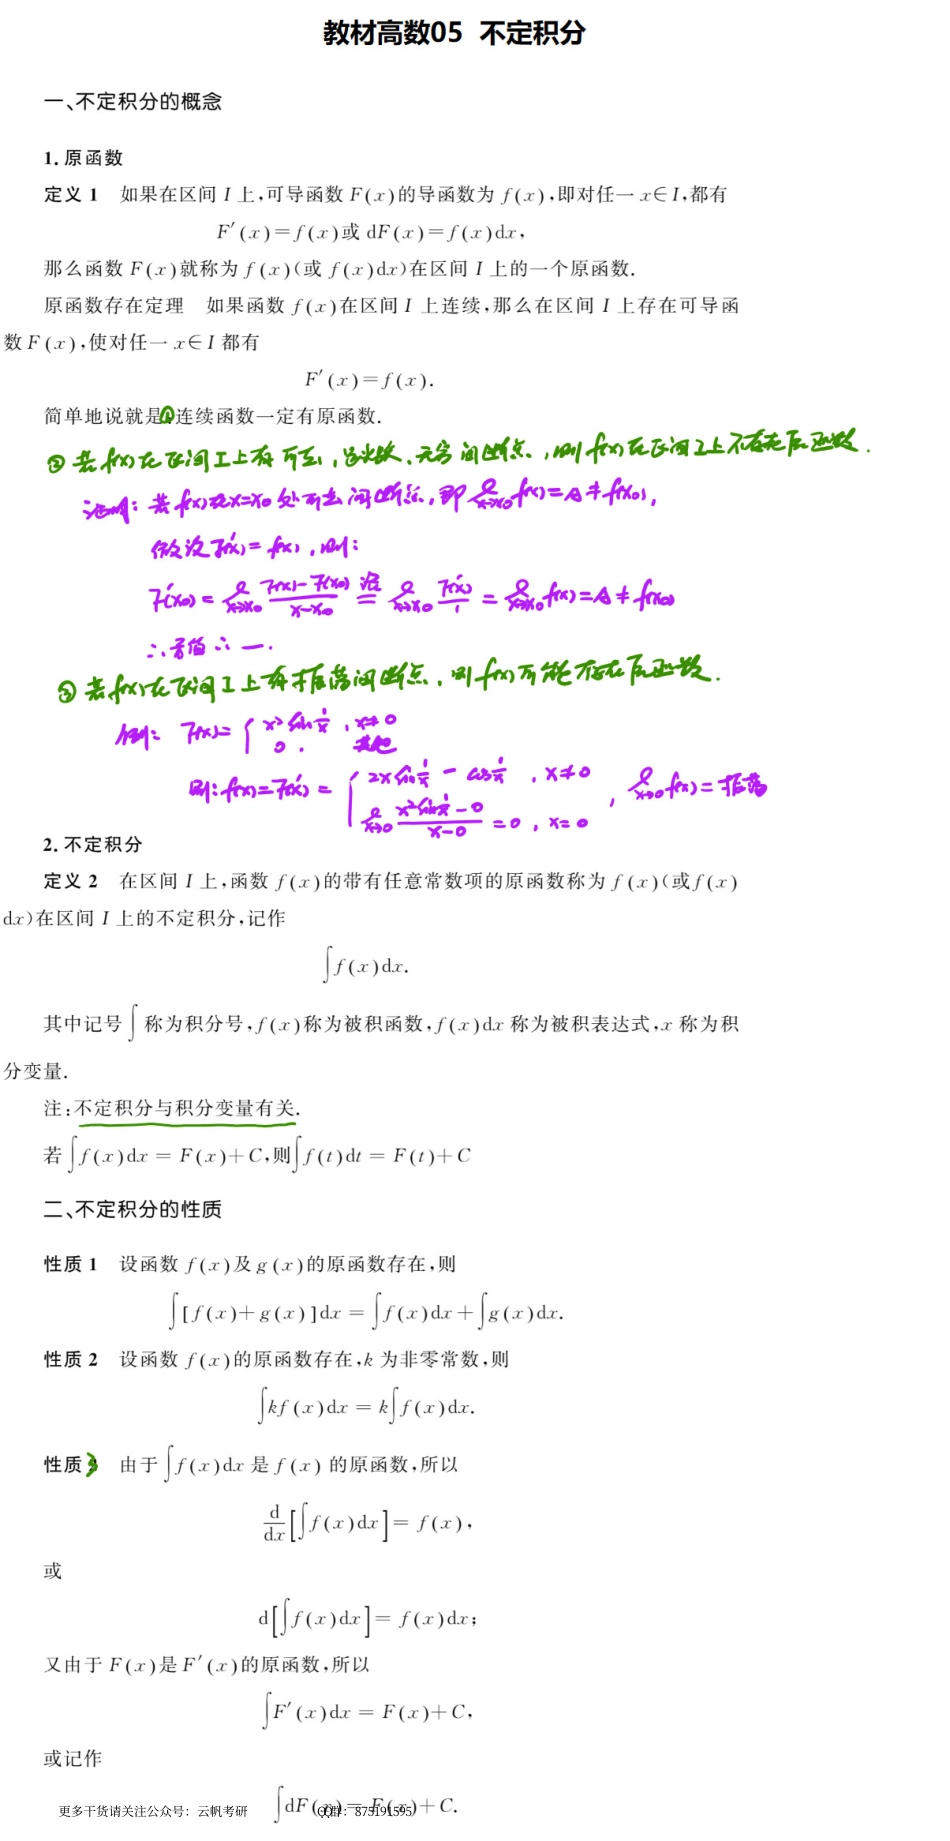 教材高数05 不定积分
一、不定积分的概念
1. 原函数
定义 1 如果在区间 I 上,可导函数 F(x)的导函数为 f(x),即对任一 x∈I,都有
F′(x)=f(x)或 dF(x)=f(x)dx,
那么函数 F(x)就称为 f(x)(或 f(x)dx)在区间 I 上的一个原函数.
原函数存在定理 如果函数 f(x)在区间 I 上连续,那么在区间 I 上存在可导函
数 F(x),使对任一 x∈I 都有
F′(x)=f(x).
简单地说就是①连续函数一定有原函数.
② 若f(x)在区间I上有可去、跳跃、无穷间断点,则f(x)在区间I上不存在原函数.
证明: 若f(x)在x=x₀处可去间断点,即 lim x→x₀ f(x)=A≠f(x₀),
假设F′(x)=f(x),则:
F′(x₀) = lim x→x₀ (F(x)-F(x₀))/(x-x₀) 洛= lim x→x₀ F′(x)/1 = lim x→x₀ f(x)=A≠f(x₀)
③ 若f(x)在区间I上有振荡间断点,则f(x)可能存在原函数.
例: F(x)= { x² sin 1/x , x≠0
0 , 其他
则:f(x)=F′(x) = { 2x sin 1/x - cos 1/x , x≠0 , lim x→0 f(x)=振荡
lim x→0 (x² sin 1/x - 0)/(x-0) = 0 , x=0
2. 不定积分
定义 2 在区间 I 上,函数 f(x)的带有任意常数项的原函数称为 f(x)(或f(x)
dx)在区间 I 上的不定积分,记作
∫f(x)dx.
其中记号∫称为积分号,f(x)称为被积函数,f(x)dx 称为被积表达式,x 称为积
分变量.
注:不定积分与积分变量有关.
若∫f(x)dx = F(x)+C,则∫f(t)dt = F(t)+C
二、不定积分的性质
性质 1 设函数 f(x)及 g(x)的原函数存在,则
∫[f(x)+g(x)]dx = ∫f(x)dx+∫g(x)dx.
性质 2 设函数 f(x)的原函数存在,k 为非零常数,则
∫kf(x)dx = k∫f(x)dx.
性质 3 由于∫f(x)dx 是 f(x) 的原函数,所以
d/dx[∫f(x)dx]= f(x),
或
d[∫f(x)dx]= f(x)dx;
又由于 F(x)是 F′(x)的原函数,所以
∫F′(x)dx = F(x)+C,
或记作
∫dF(x) = F(x)+C.
更多干货请关注公众号：云帆考研 QQ群：875191595